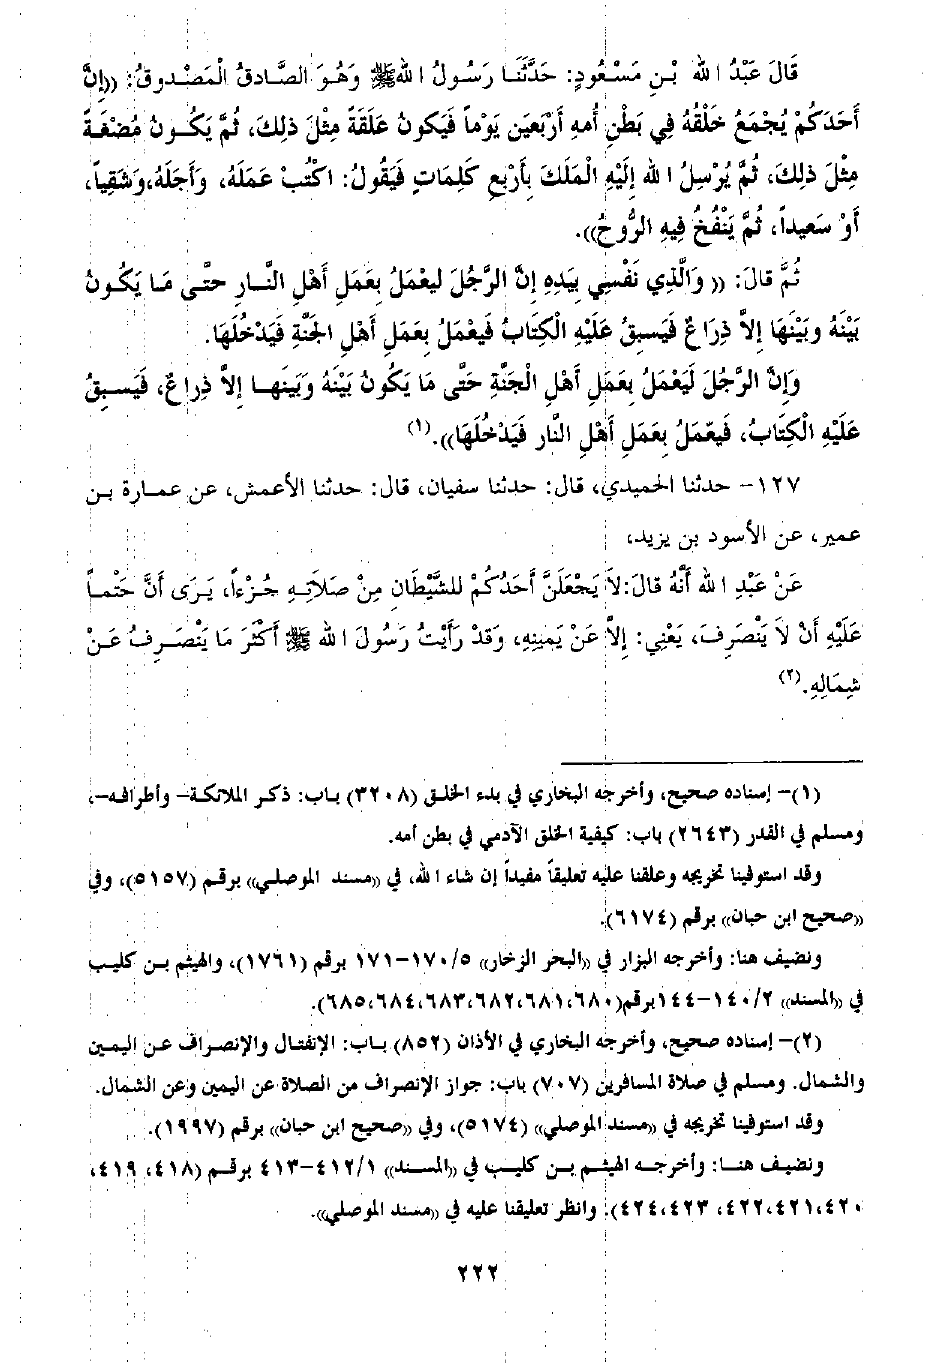 قَالَ عَبْدُ اللهِ بْنِ مَسْعُودٍ: حَدَّثَنَا رَسُولُ اللهِ ﷺ وَهُوَ الصَّادِقُ الْمَصْدُوقُ: ((إِنَّ
أَحَدَكُمْ يُجْمَعُ خَلْقُهُ فِي بَطْنِ أُمهِ أَرْبَعَين يَوْماً فَيَكونُ عَلَقَةً مِثْلَ ذلِكَ، ثُمَّ يَكُونُ مُضْغَةً
مِثْلَ ذلِكَ، ثُمَّ يُرْسِلُ اللهُ إِلَيْهِ الْمَلَكَ بِأَرْبَعِ كَلِمَاتٍ فَيَقُولُ: اكْتُبْ عَمَلَهُ، وَأَجَلَهُ،وَشَقِياً،
أَوْ سَعِيداً، ثُمَّ يَنْفُخُ فِيهِ الرُّوحُ)).
ثُمَّ قَالَ: (( وَالَّذِي نَفْسِي بِيَدِهِ إِنَّ الرَّجُلَ ليَعْمَلُ بِعَمَلِ أَهْلِ النَّارِ حتَّى مَا يَكُونُ
بَيْنَهُ وبَيْنَهَا إِلاَّ ذِرَاعٌ فَيَسبِقُ عَلَيْهِ الْكِتَابُ فَيعْمَلُ بِعَمَلِ أَهْلِ الجَنَّةِ فَيَدْخُلَهَا.
وَإِنَّ الرَّجُلَ لَيَعْمَلُ بِعَمَلِ أَهْلِ الْجَنَّةِ حَتَّى مَا يَكُونُ بَيْنَهُ وَبَينَها إِلاَّ ذِرَاعٌ، فَيَسبِقُ
عَلَيْهِ الْكِتَابُ، فَيعْمَلُ بِعَمَلِ أَهْلِ النَّار فَيَدْخُلَهَا)).(١)
١٢٧- حدثنا الحميدي، قال: حدثنا سفيان، قال: حدثنا الأعمش، عن عمارة بن
عمير، عن الأسود بن يزيد،
عَنْ عَبْدِ اللهِ أَنَّهُ قالَ:لاَ يَجْعَلَنَّ أَحَدُكُمْ للشَّيْطَانِ مِنْ صَلاَتِهِ جُزْءاً، يَرَى أَنَّ حَتْماً
عَلَيْهِ أَنْ لاَ يَنْصَرِفَ، يَعْنِي: إِلاَّ عَنْ يَمِينِهِ، وَقَدْ رَأَيْتُ رَسُولَ اللهِ ﷺ أَكْثَرَ مَا يَنْصَرِفُ عَنْ
شِمَالِهِ.(٢)
(١)- إسناده صحيح، وأخرجه البخاري في بدء الخلق (٣٢٠٨) باب: ذكر الملائكة- وأطرافه-،
ومسلم في القدر (٢٦٤٣) باب: كيفية الخلق الآدمي في بطن أمه.
وقد استوفينا تخريجه وعلقنا عليه تعليقاً مفيداً إن شاء الله، في ((مسند الموصلي)) برقم (٥١٥٧)، وفي
((صحيح ابن حبان)) برقم (٦١٧٤).
ونضيف هنا: وأخرجه البزار في ((البحر الزخار)) ١٧٠/٥-١٧١ برقم (١٧٦١)، والهيثم بن كليب
في ((المسند)) ١٤٠/٢-١٤٤برقم(٦٨٠،٦٨١،٦٨٢،٦٨٣،٦٨٤،٦٨٥).
(٢)- إسناده صحيح، وأخرجه البخاري في الأذان (٨٥٢) باب: الإنفتال والإنصراف عن اليمين
والشمال. ومسلم في صلاة المسافرين (٧٠٧) باب: جواز الإنصراف من الصلاة عن اليمين وعن الشمال.
وقد استوفينا تخريجه في ((مسند الموصلي)) (٥١٧٤)، وفي ((صحيح ابن حبان)) برقم (١٩٩٧).
ونضيف هنا: وأخرجه الهيثم بن كليب في ((المسند)) ٤١٢/١-٤١٣ برقم (٤١٨، ٤١٩،
٤٢٠،٤٢١،٤٢٢، ٤٢٣،٤٢٤). وانظر تعليقنا عليه في ((مسند الموصلي)).
٢٢٢